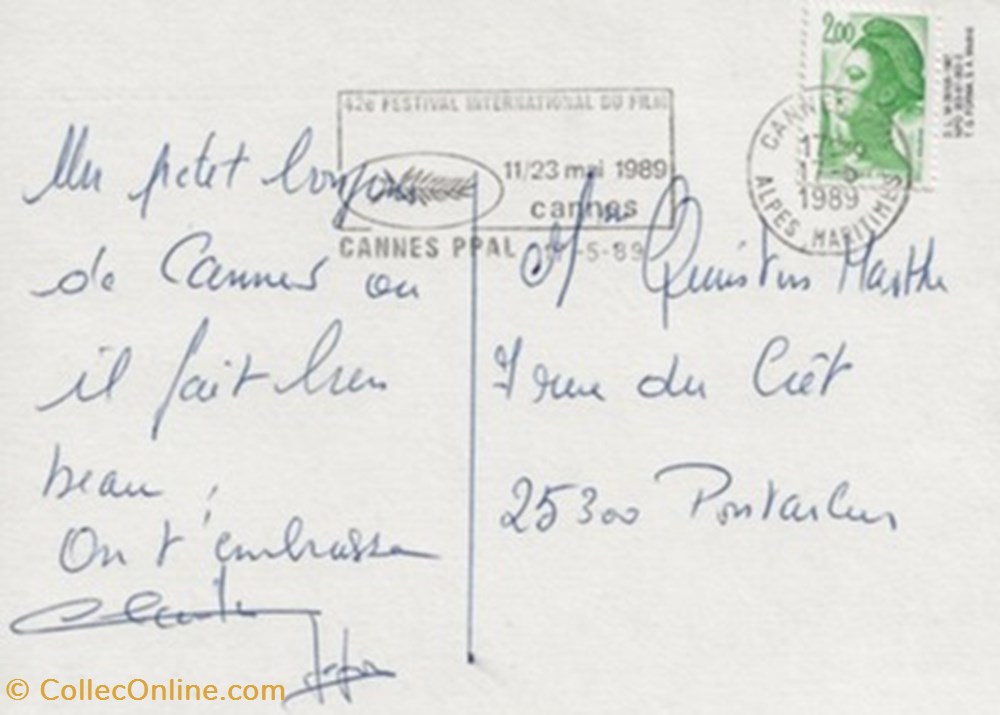 2,00
42e FESTIVAL INTERNATIONAL DU FILM
11/23 mai 1989
cannes
CANNES PPAL -5-89
CANNES
17-5
1989
ALPES MARITIMES
Un petit bonjour
de Cannes ou
il fait bien
beau,
On t'embrasse
Quistus Marthe
7 rue du Crêt
25300 Pontarlier
© CollecOnline.com